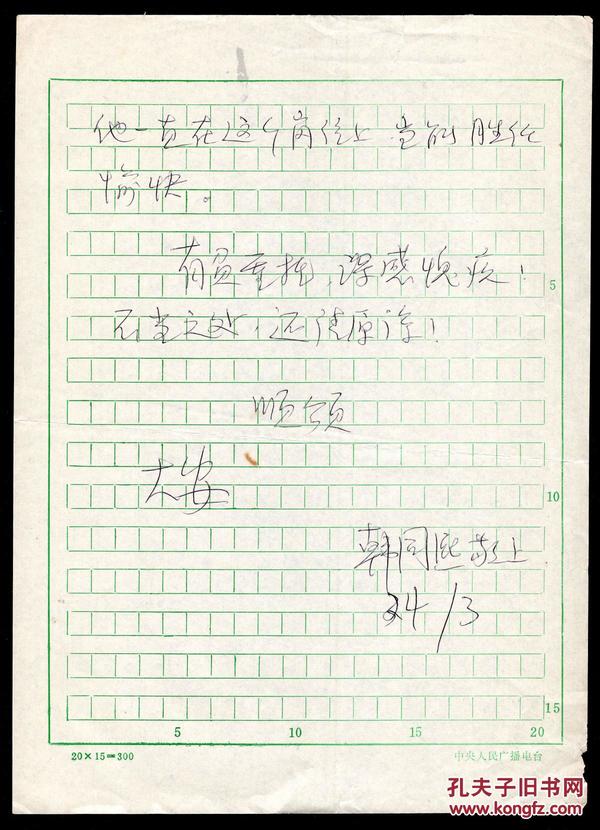 他一直在这个岗位上 当能胜任
愉快。
有负重托,深感愧疚!
不当之处,还请原谅!
顺颂
大安
韩同熙敬上
24/3
5
10
15
5 10 15 20
20×15=300
中央人民广播电台
孔夫子旧书网
www.kongfz.com